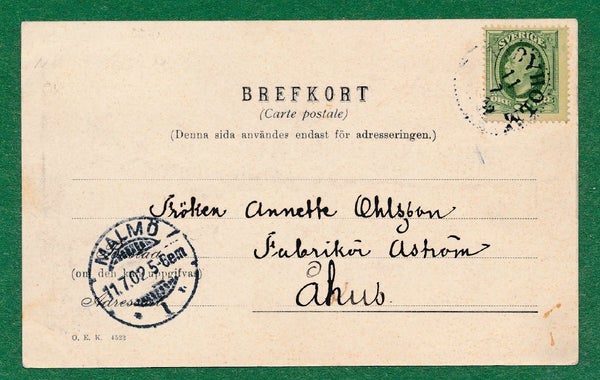 SVERIGE
BREFKORT
(Carte postale)
(Denna sida användes endast för adresseringen.)
Fröken Annette Ohlsson
Fabrikör Åström
Åhus
MALMÖ 1
11.7.02 5-6em
1
(om den kan uppgifvas)
Adressort
O. E. K. 4522